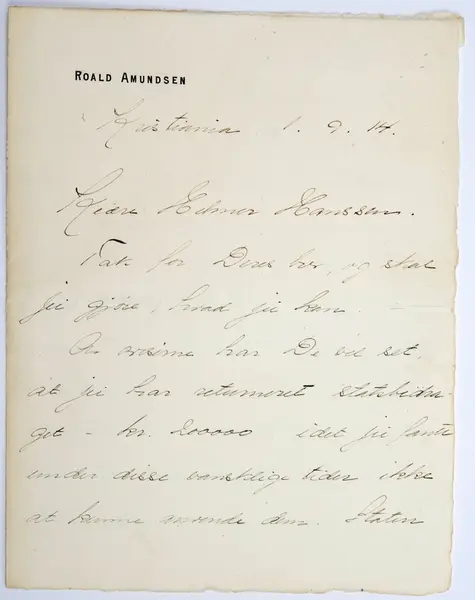 ROALD AMUNDSEN
Kristiania 1. 9. 14.
Kjære Helmer Hanssen.
Tak for Deres brev, og skal
jei gjöre, hvad jei kan.
Av aviserne har De vel set,
at jei har returneret statsbidra-
get - kr. 200000 idet jei fant
under disse vanskelige tider ikke
at kunne anvende dem. Staten